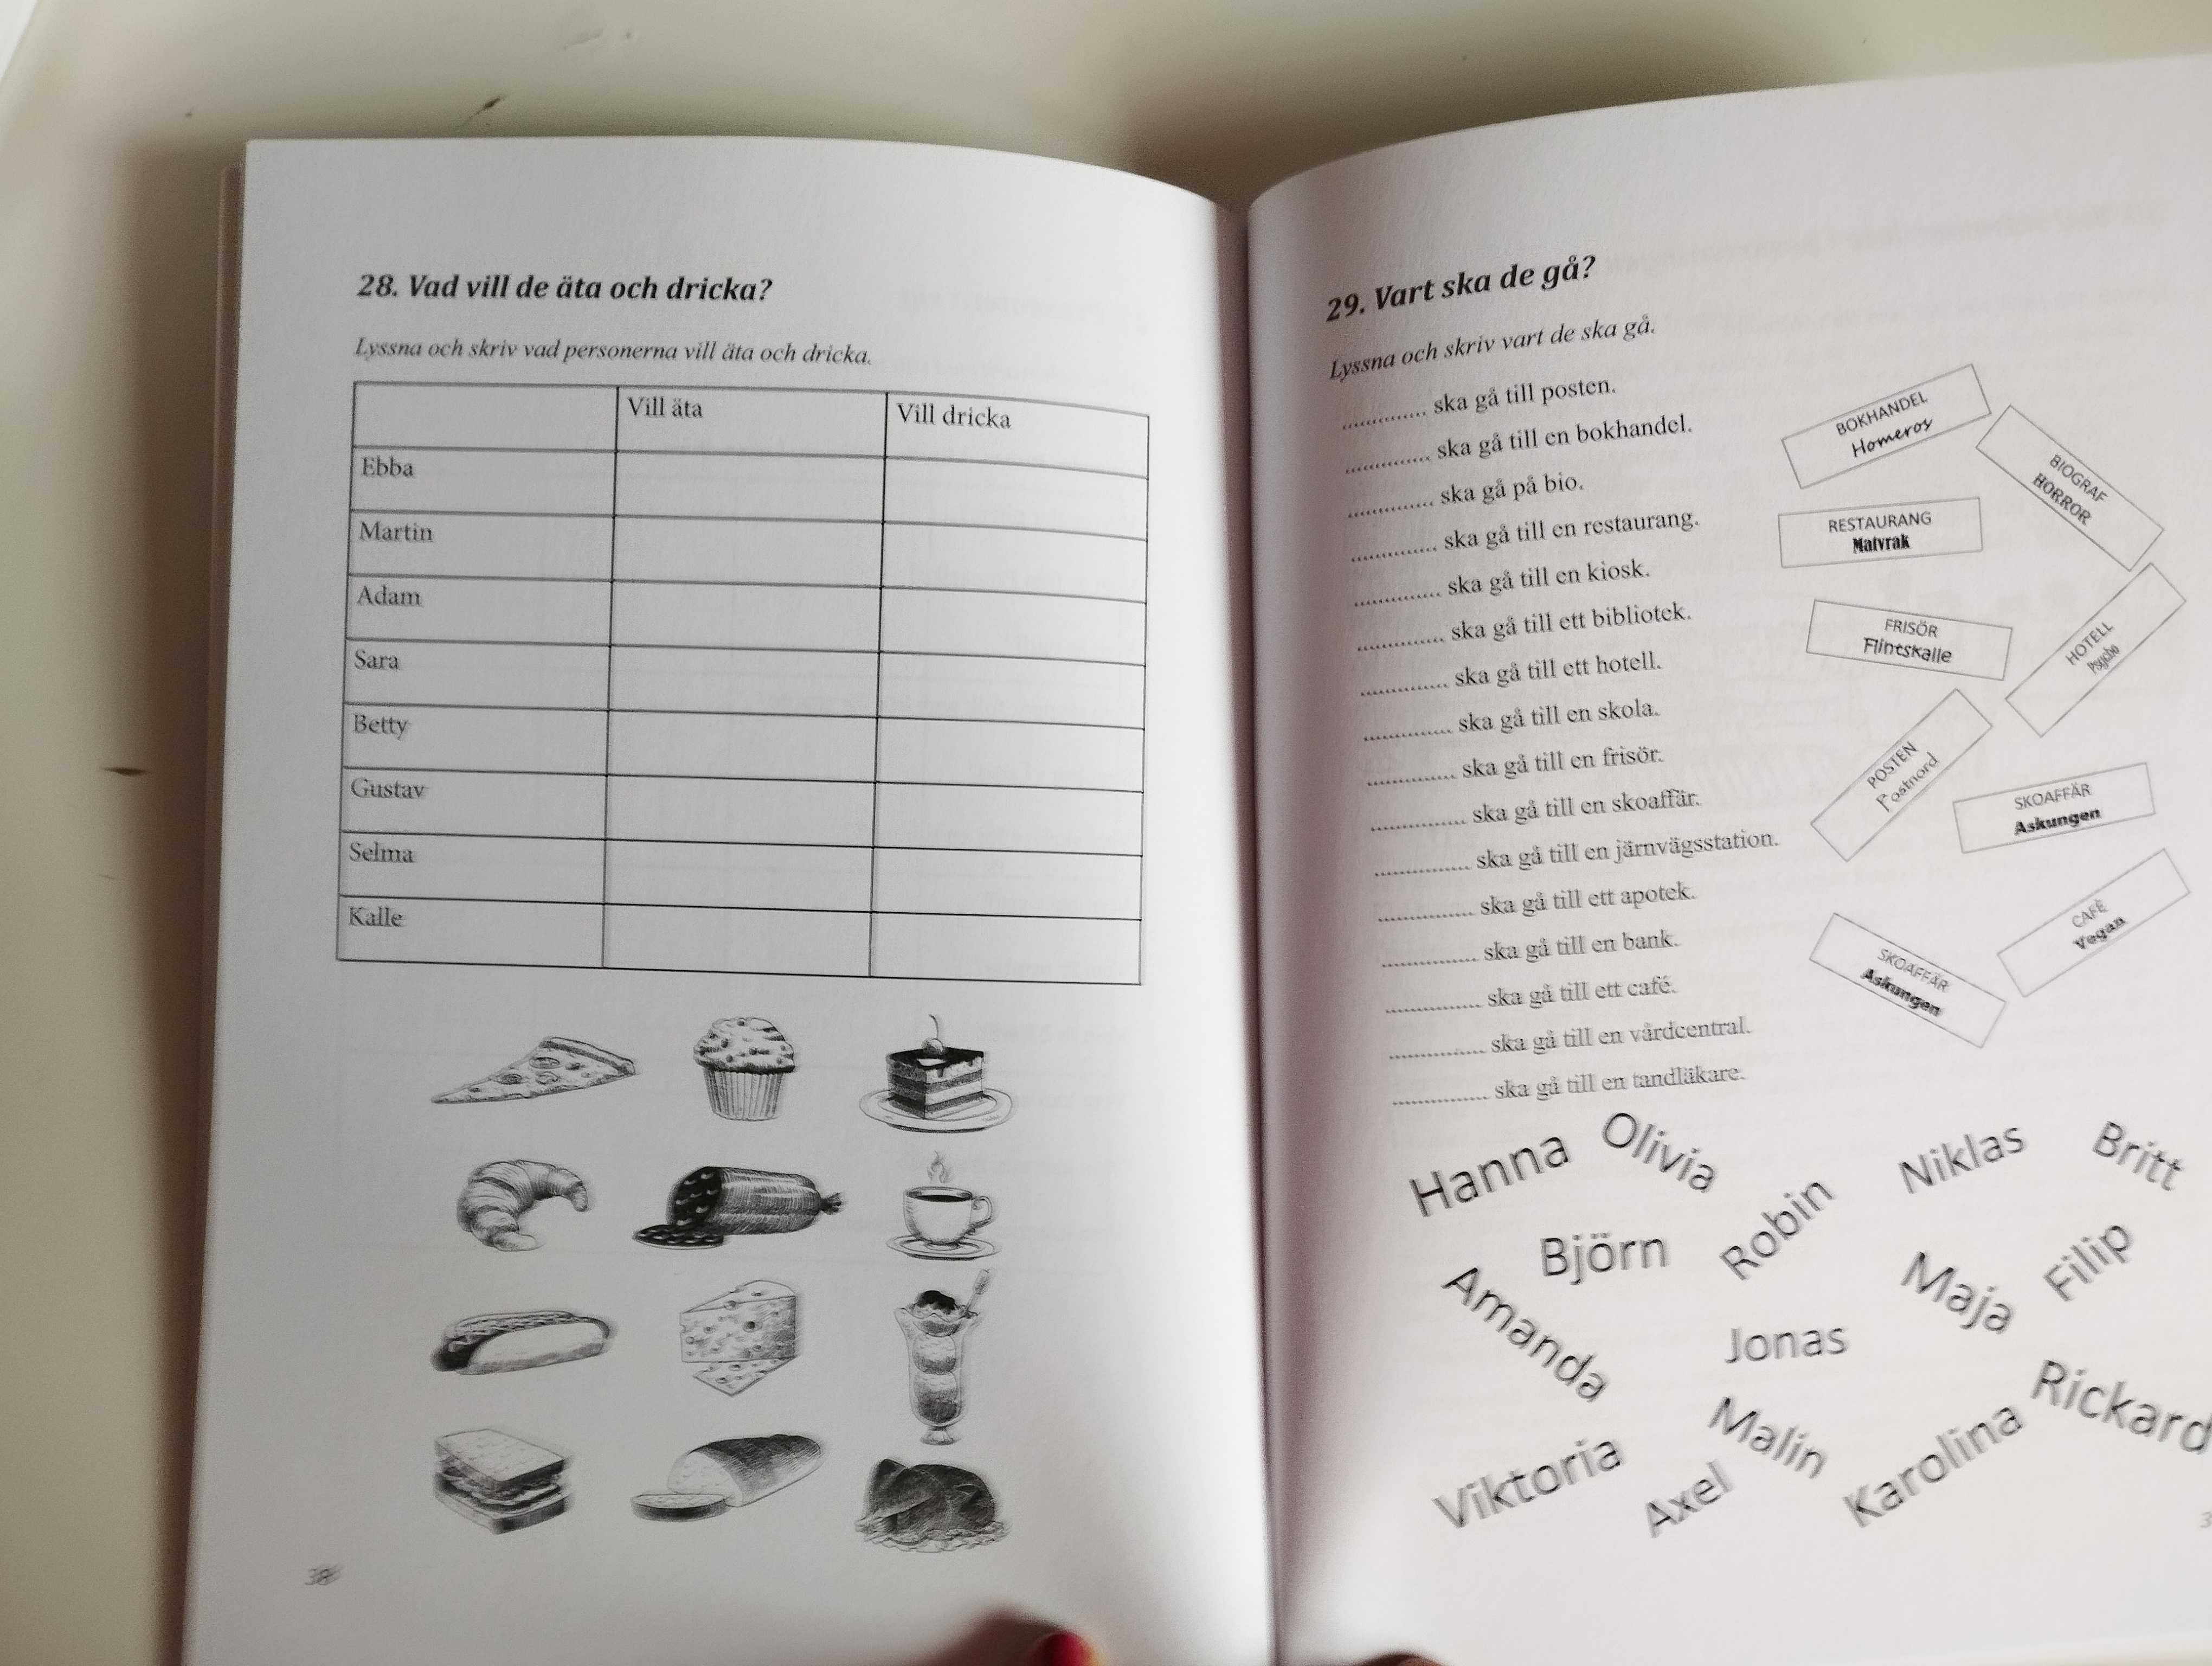 28. Vad vill de äta och dricka?
Lyssna och skriv vad personerna vill äta och dricka.
Vill äta
Vill dricka
Ebba
Martin
Adam
Sara
Betty
Gustav
Selma
Kalle
38
29. Vart ska de gå?
Lyssna och skriv vart de ska gå.
............. ska gå till posten.
............. ska gå till en bokhandel.
............. ska gå på bio.
............. ska gå till en restaurang.
............. ska gå till en kiosk.
............. ska gå till ett bibliotek.
............. ska gå till ett hotell.
............. ska gå till en skola.
............. ska gå till en frisör.
.............. ska gå till en skoaffär.
.............. ska gå till en järnvägsstation.
.............. ska gå till ett apotek.
.............. ska gå till en bank.
.............. ska gå till ett café.
.............. ska gå till en vårdcentral.
.............. ska gå till en tandläkare.
BOKHANDEL
Homeros
BIOGRAF
HORROR
RESTAURANG
Matvrak
FRISÖR
Flintskalle
HOTELL
Psycho
POSTEN
Postnord
SKOAFFÄR
Askungen
CAFÉ
Vegan
SKOAFFÄR
Askungen
Hanna
Olivia
Niklas
Britt
Björn
Robin
Amanda
Maja
Filip
Jonas
Rickard
Malin
Viktoria
Axel
Karolina